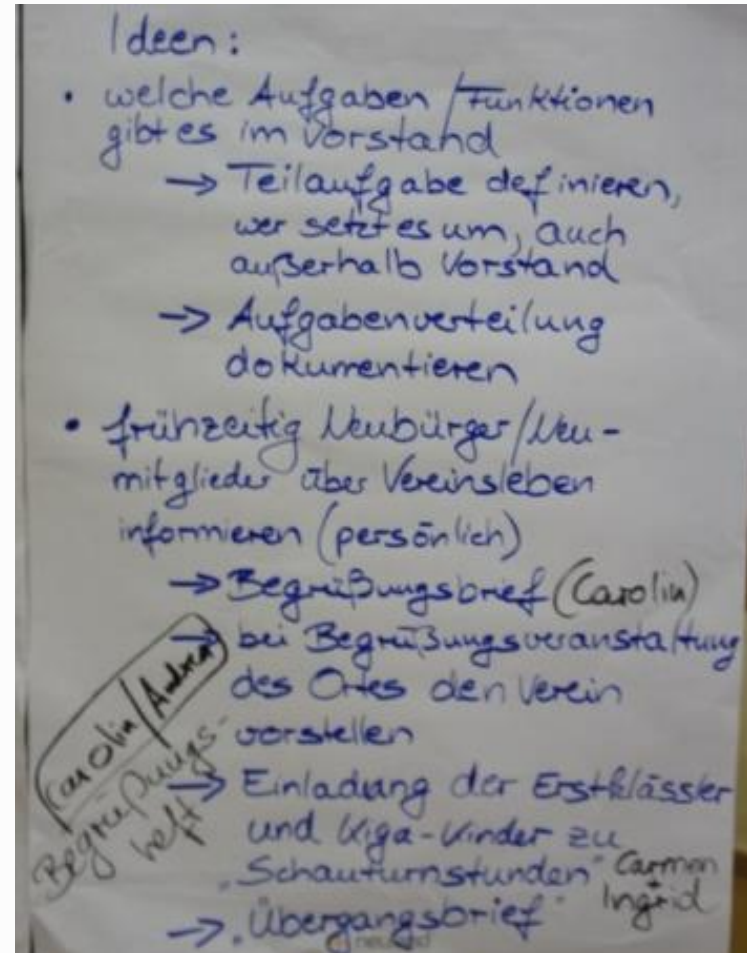 Ideen:
• welche Aufgaben/Funktionen
gibt es im Vorstand
→ Teilaufgabe definieren,
wer setzt es um, auch
außerhalb Vorstand
→ Aufgabenverteilung
dokumentieren
• frühzeitig Neubürger/Neu-
mitglieder über Vereinsleben
informieren (persönlich)
→ Begrüßungsbrief (Carolin)
→ bei Begrüßungsveranstaltung
des Ortes den Verein
vorstellen
Carolin/Andrea
Begrüßungs-
heft
→ Einladung der Erstklässler
und Kiga-Kinder zu
„Schauturnstunden" Carmen
+ Ingrid
→ „Übergangsbrief"